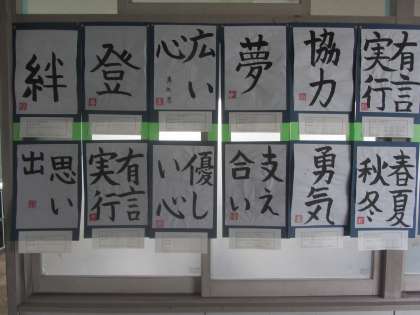 絆
登
広い
心
夢
協力
有言
実行
思い
出
有言
実行
優し
い心
支え
合い
勇気
春夏
秋冬